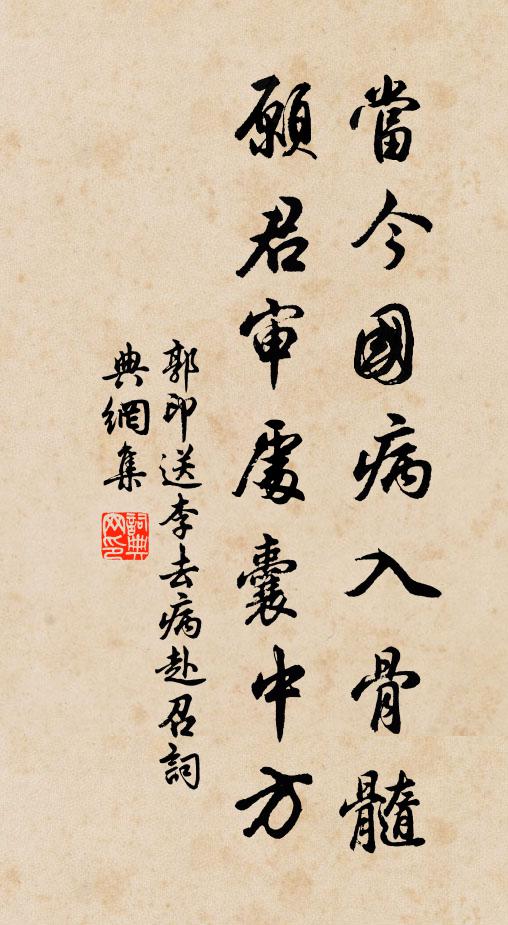 當今國病入骨髓
願君审處囊中方
郭印送李去病赴召詞
典網集
詞典
网印